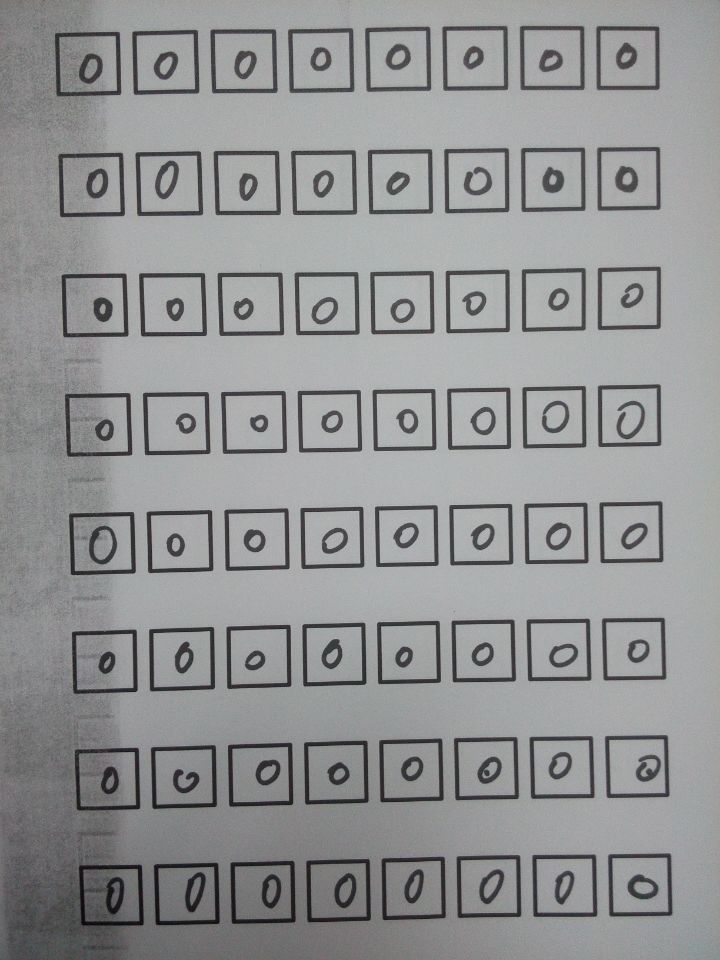 0 0 0 0 0 0 0 0
0 0 0 0 0 0 0 0
0 0 0 0 0 0 0 0
0 0 0 0 0 0 0 0
0 0 0 0 0 0 0 0
0 0 0 0 0 0 0 0
0 0 0 0 0 0 0 0
0 0 0 0 0 0 0 0